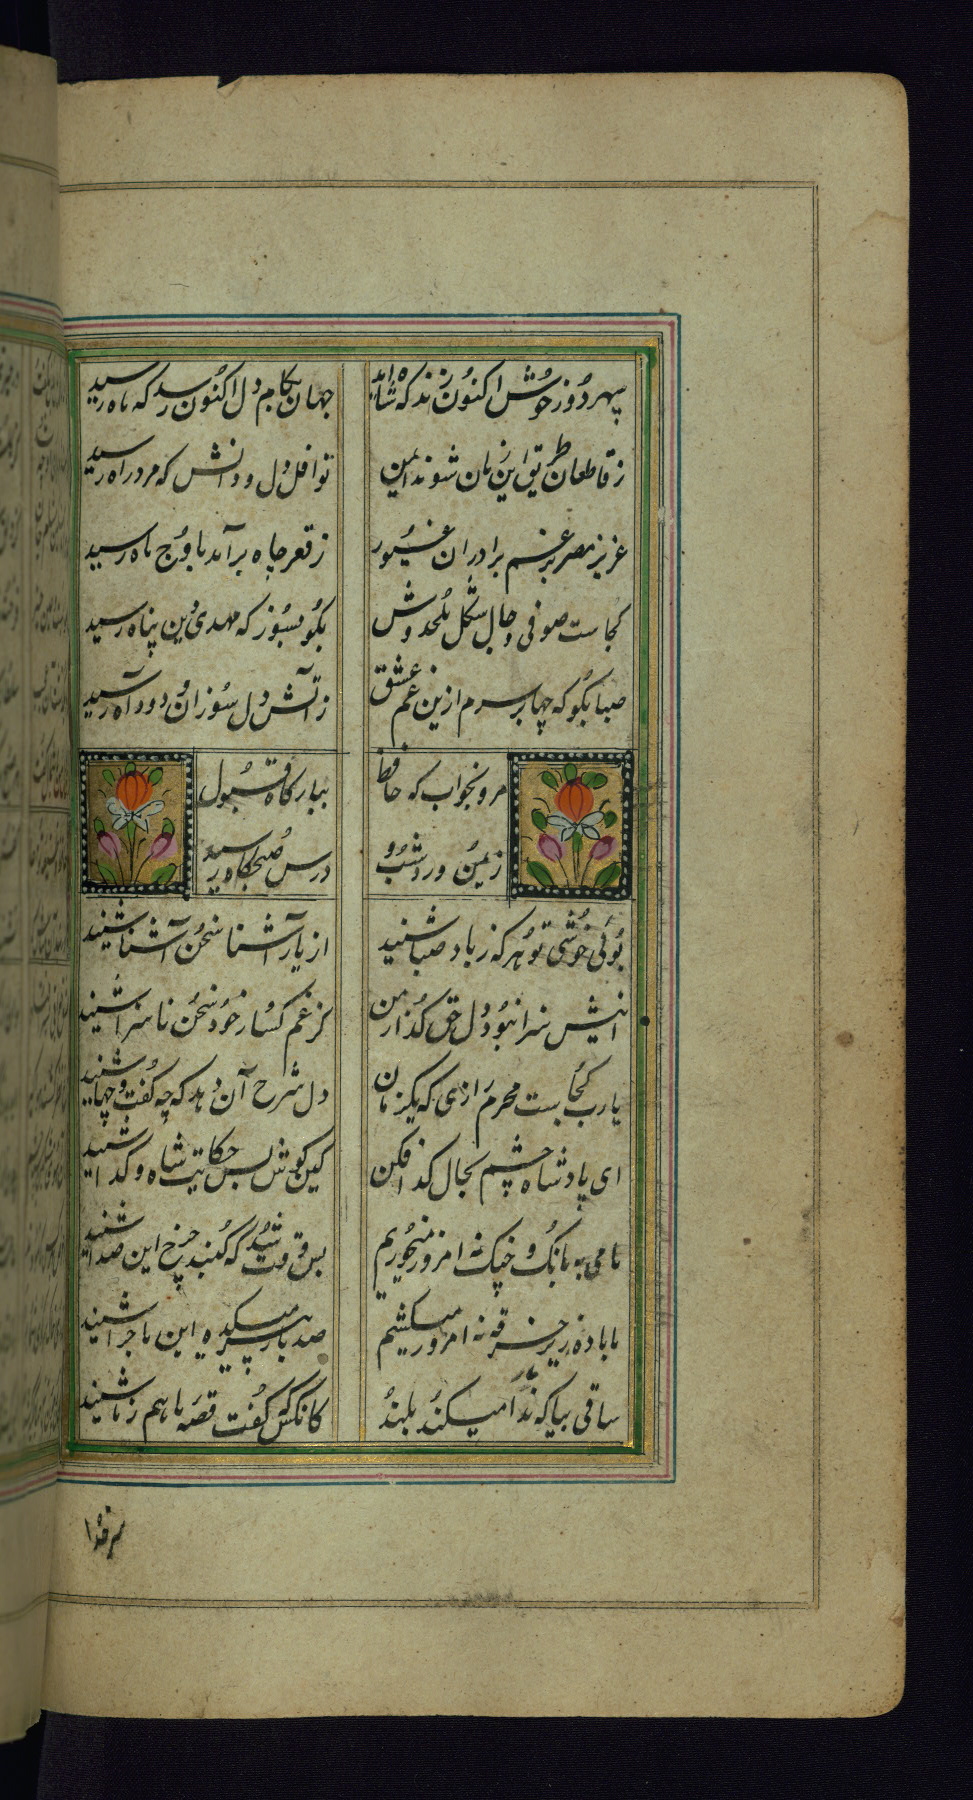 سپهر دور خوش اکنون زند که شاه آمد جهان بکام دل اکنون رسد که ماه رسید
ز قاطعان طریق این زمان شوند ایمن قوافل دل و دانش که مرد راه رسید
عزیز مصر برغم برادران غیور ز قعر چاه برآمد باوج ماه رسید
کجاست صوفی دجال شکل ملحدوش بگو بسوز که مهدی دین پناه رسید
صبا بگو که چها بر سرم ازین غم عشق ز آتش دل سوزان و دود آه رسید
مرو بخواب که حافظ ببارگاه قبول
ز یمن ورد شب و درس صبحگاه رسید
بوئی خوشی تو هر که ز باد صبا شنید از یار آشنا سخن آشنا شنید
اینش سزا نبود دل حق گذار من کز غم گسار خود سخن ناسزا شنید
یارب کجاست محرم رازی که یکزمان دل شرح آن دهد که چه گفت و چها شنید
ای پادشاه چشم بحال گدا فکن کین گوش بس حکایت شاه و گدا شنید
ما می به بانگ و چنگ نه امروز میخوریم بس وقت شد که گنبد چرخ این صدا شنید
ما باده زیر خرقه نه امروز میکشیم صد بار پیر میکده این ماجرا شنید
ساقی بیا که یار ندا میکند بلند کانکس که گفت قصه ما هم ز ما شنید